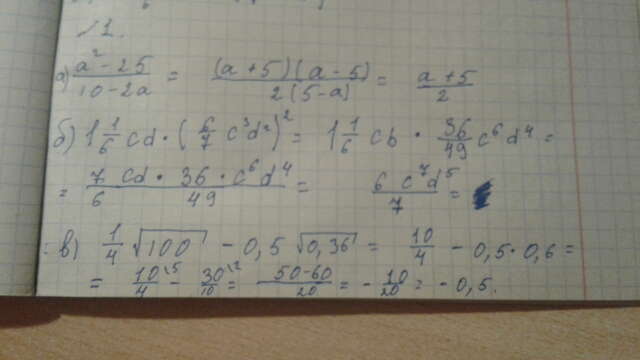 √1.
а) (a² - 25)/(10 - 2a) = ((a + 5)(a - 5))/(2(5 - a)) = (a + 5)/2
б) 1 1/6 cd · (6/7 c³d²)² = 1 1/6 cb · 36/49 c⁶d⁴ =
= (7 cd · 36 · c⁶d⁴)/(6 49) = (6 c⁷d⁵)/7 =
в) 1/4 √100 - 0,5 √0,36 = 10/4 - 0,5 · 0,6 =
= 10\5/4 - 30\2/10 = (50 - 60)/20 = - 10/20 = - 0,5.